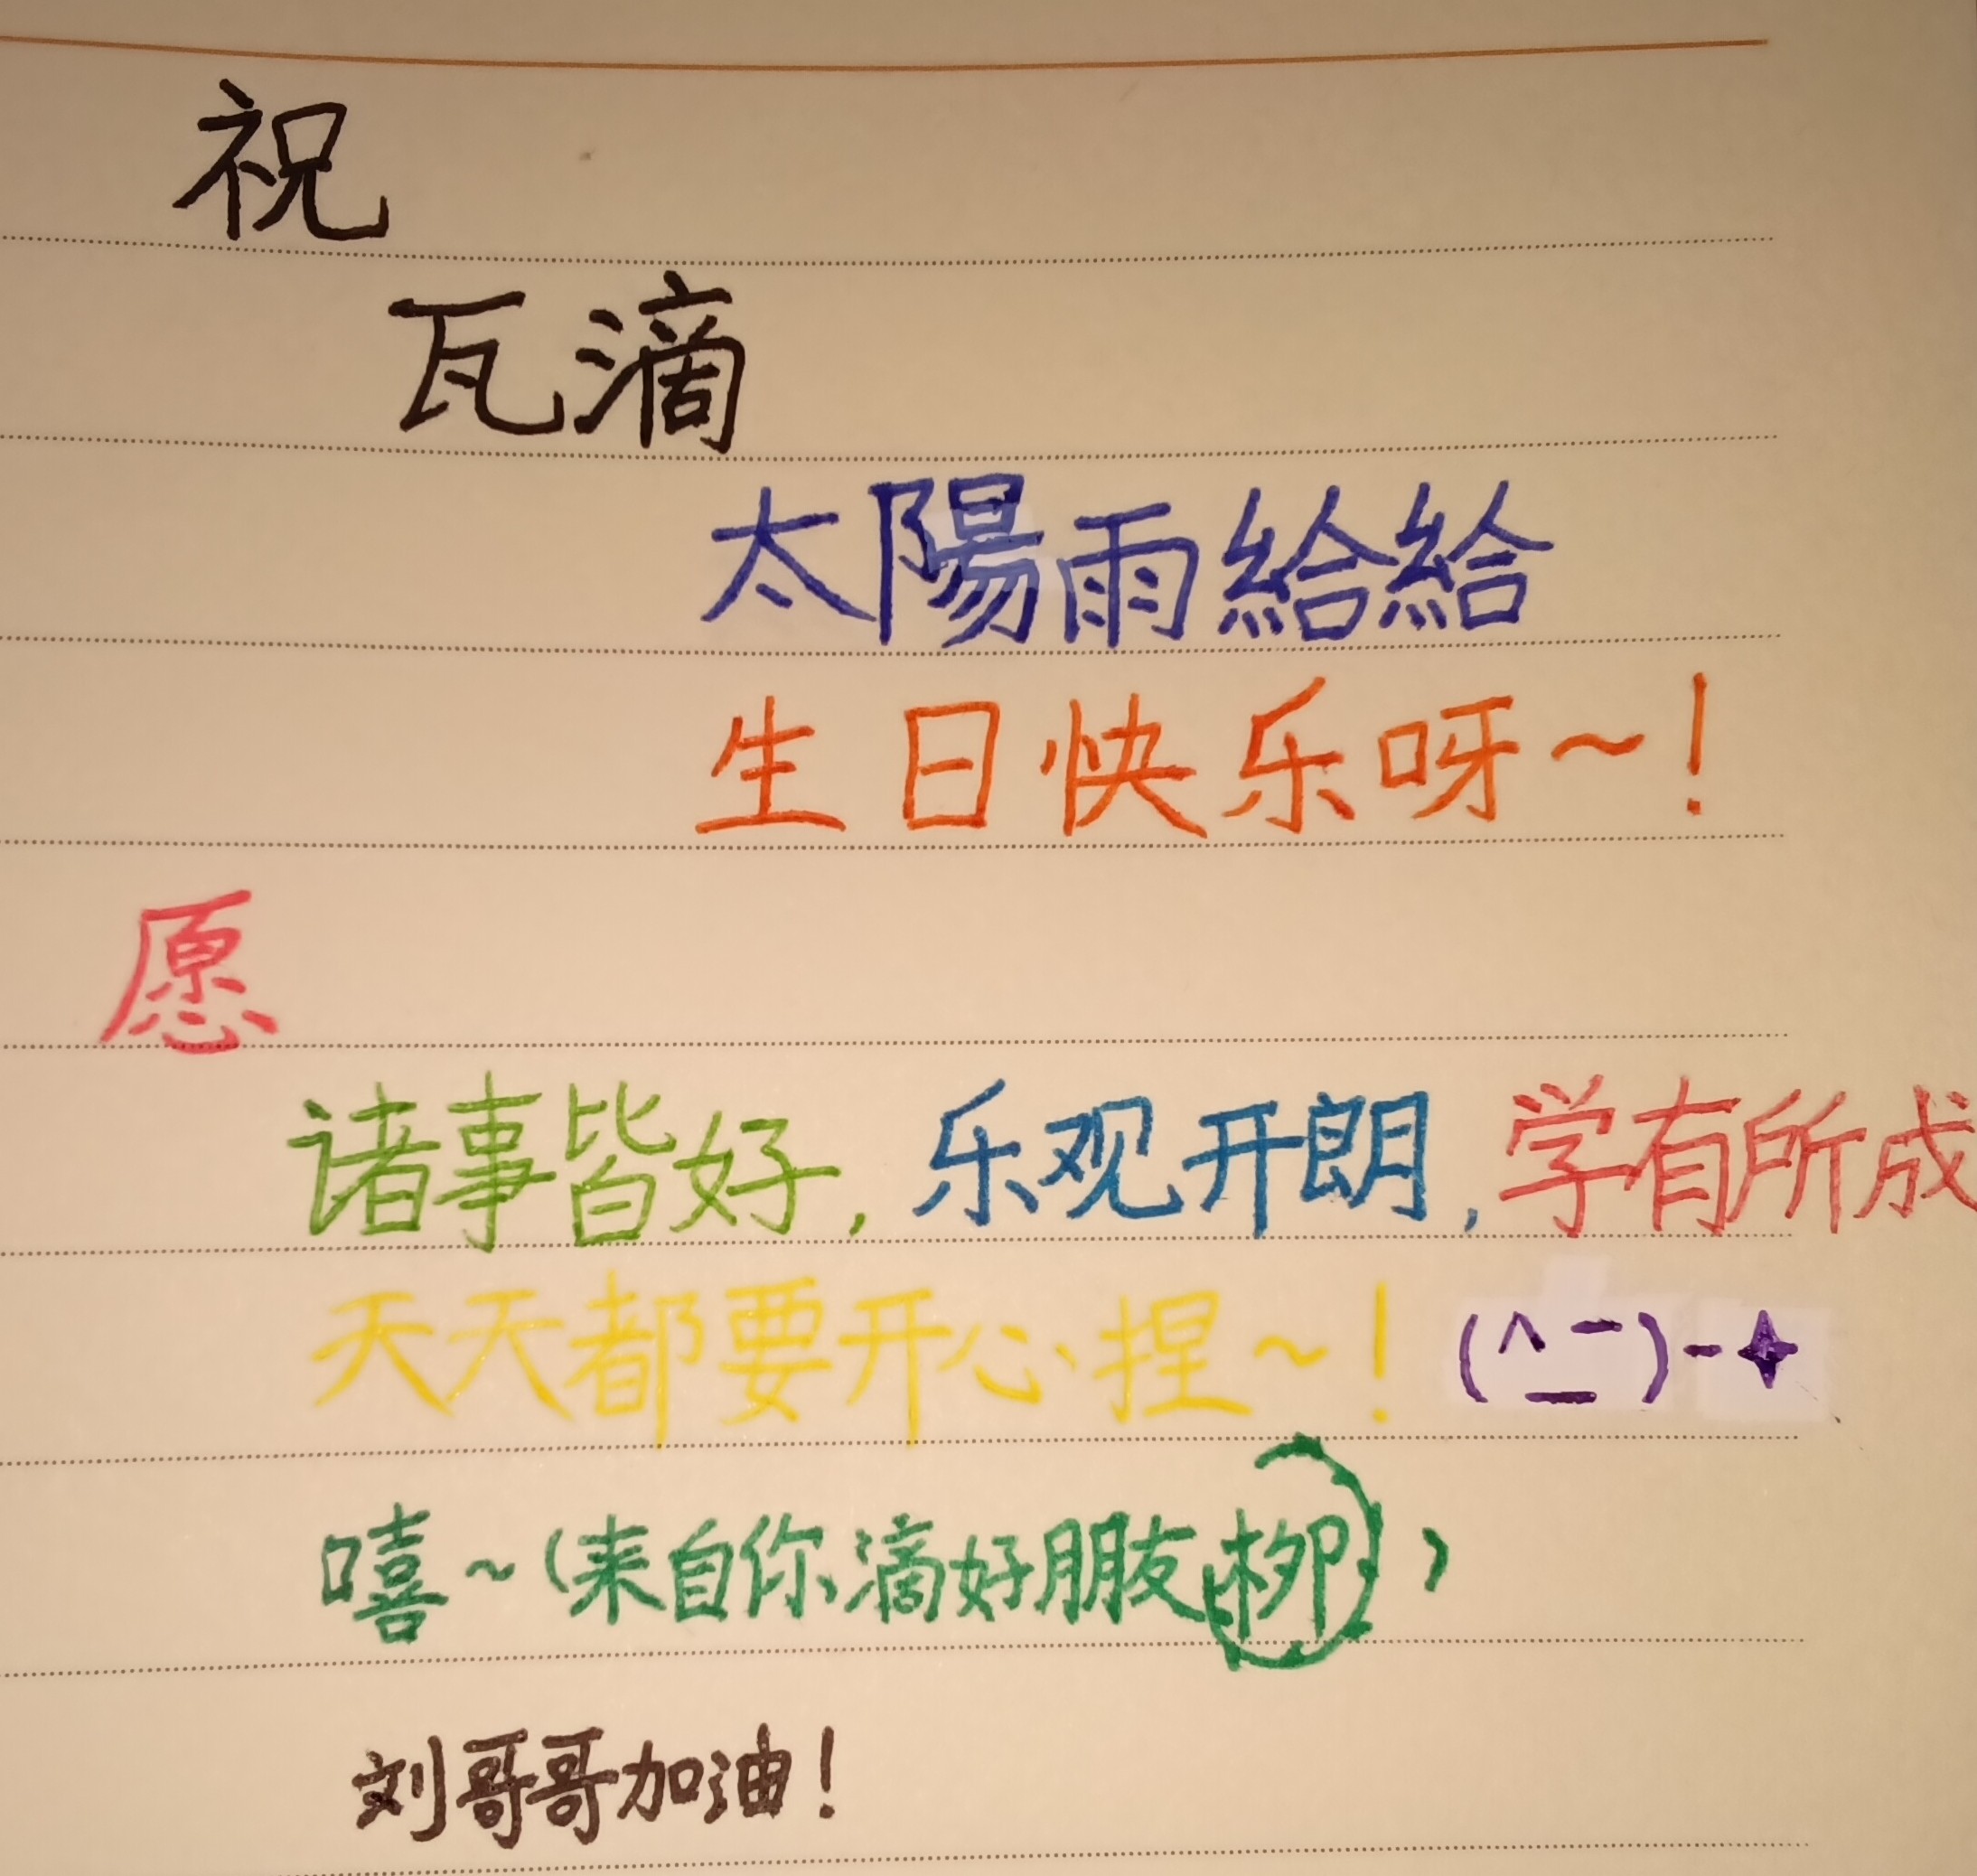 祝
瓦滴
太陽雨給給
生日快乐呀～！
愿
诸事皆好，乐观开朗，学有所成
天天都要开心捏～！(^_−)-✦
嘻～(来自你滴好朋友柳)
刘哥哥加油！